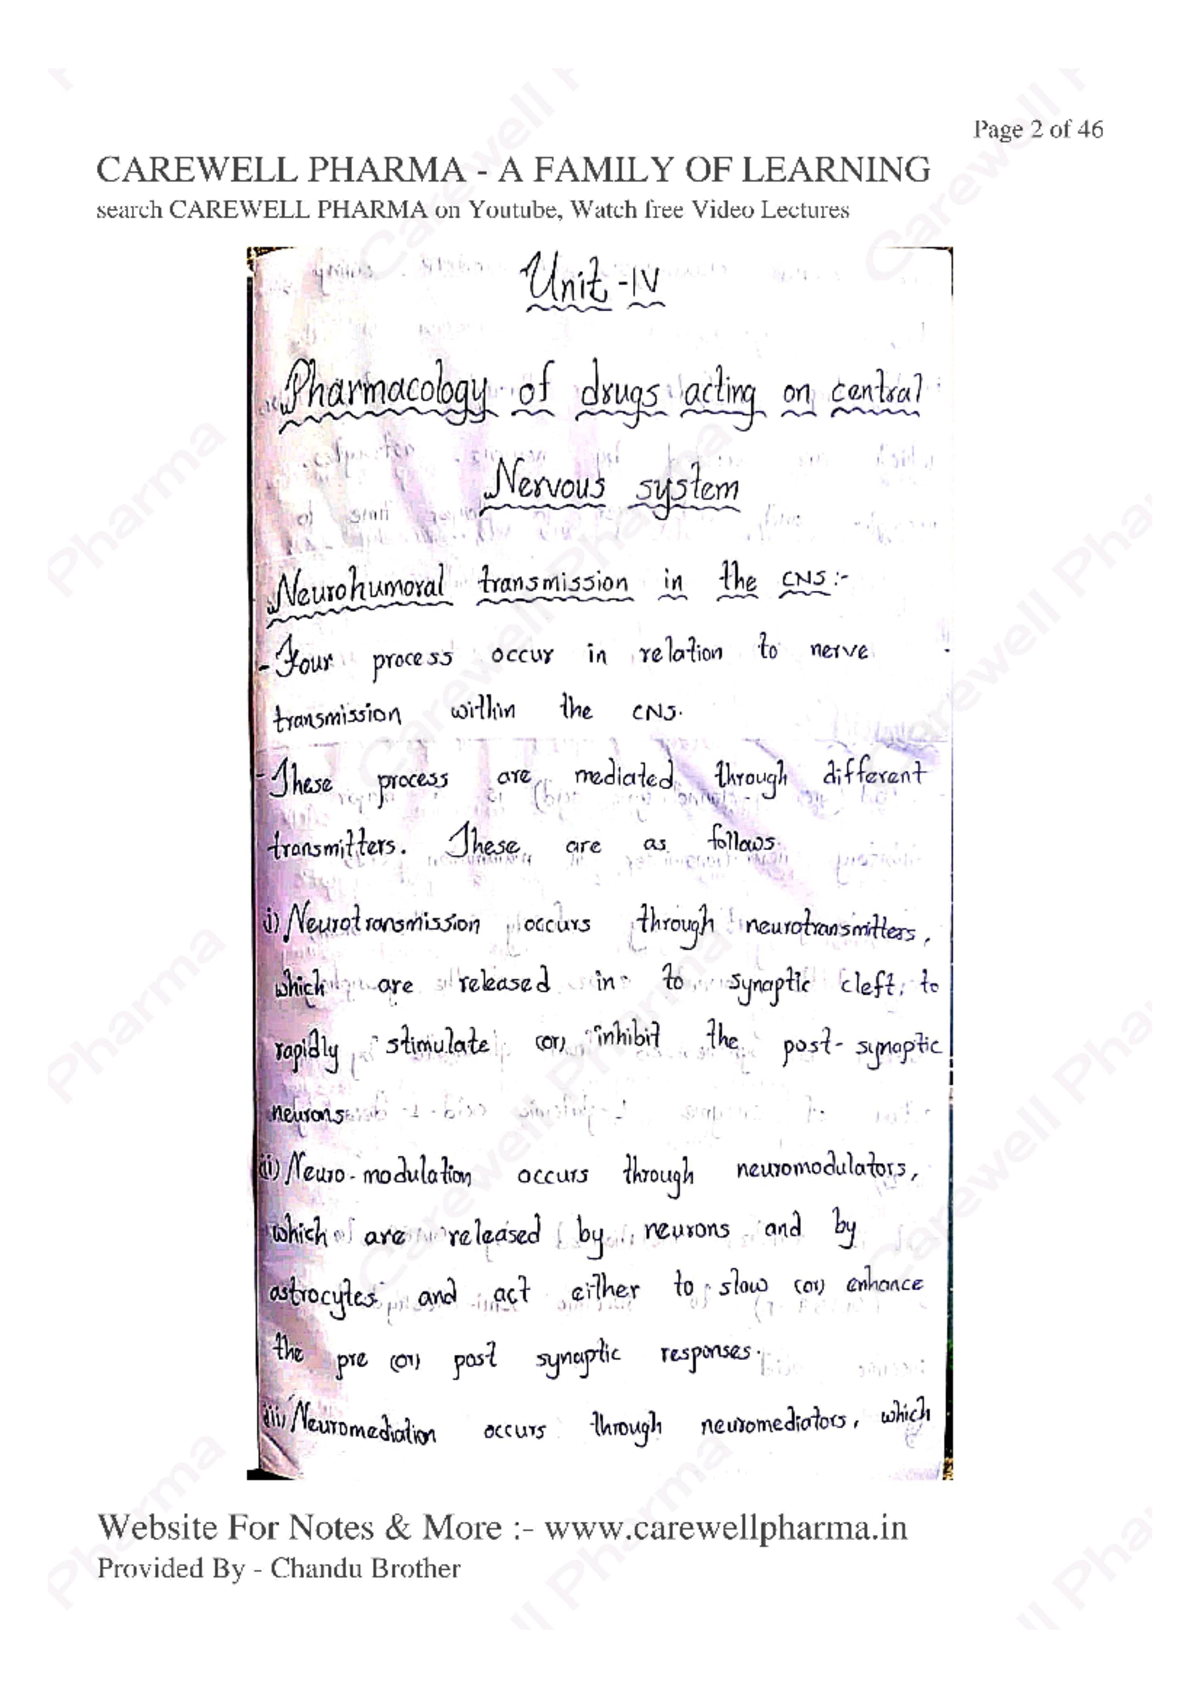 Page 2 of 46
CAREWELL PHARMA - A FAMILY OF LEARNING
search CAREWELL PHARMA on Youtube, Watch free Video Lectures
Unit-IV
Pharmacology of drugs acting on central
Nervous system
Neurohumoral transmission in the CNS:-
- Four process occur in relation to nerve
transmission within the CNS.
- These process are mediated through different
transmitters. These are as follows.
i) Neurotransmission occurs through neurotransmitters,
which are released in to synaptic cleft, to
rapidly stimulate (or) inhibit the post-synaptic
neurons.
ii) Neuro-modulation occurs through neuromodulators,
which are released by neurons and by
astrocytes and act either to slow (or) enhance
the pre (or) post synaptic responses.
iii) Neuromediation occurs through neuromediators, which
Website For Notes & More :- www.carewellpharma.in
Provided By - Chandu Brother
Carewell Pharma